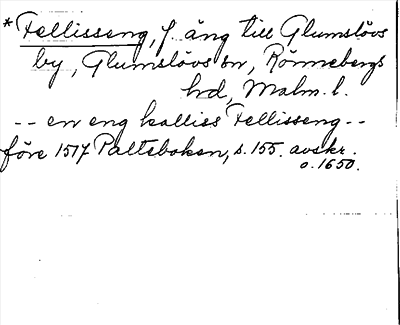 * Fellisseng, f. äng till Glumslövs
by, Glumslövs sn, Rönnebergs
hd, Malm. l.
-- en eng kalliss Fellisseng --
före 1517 Palteboken, s. 155. avskr.
o. 1650.